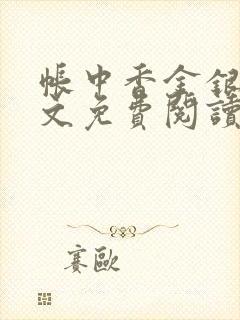 帳中香金銀
文免費閱讀
賽歐